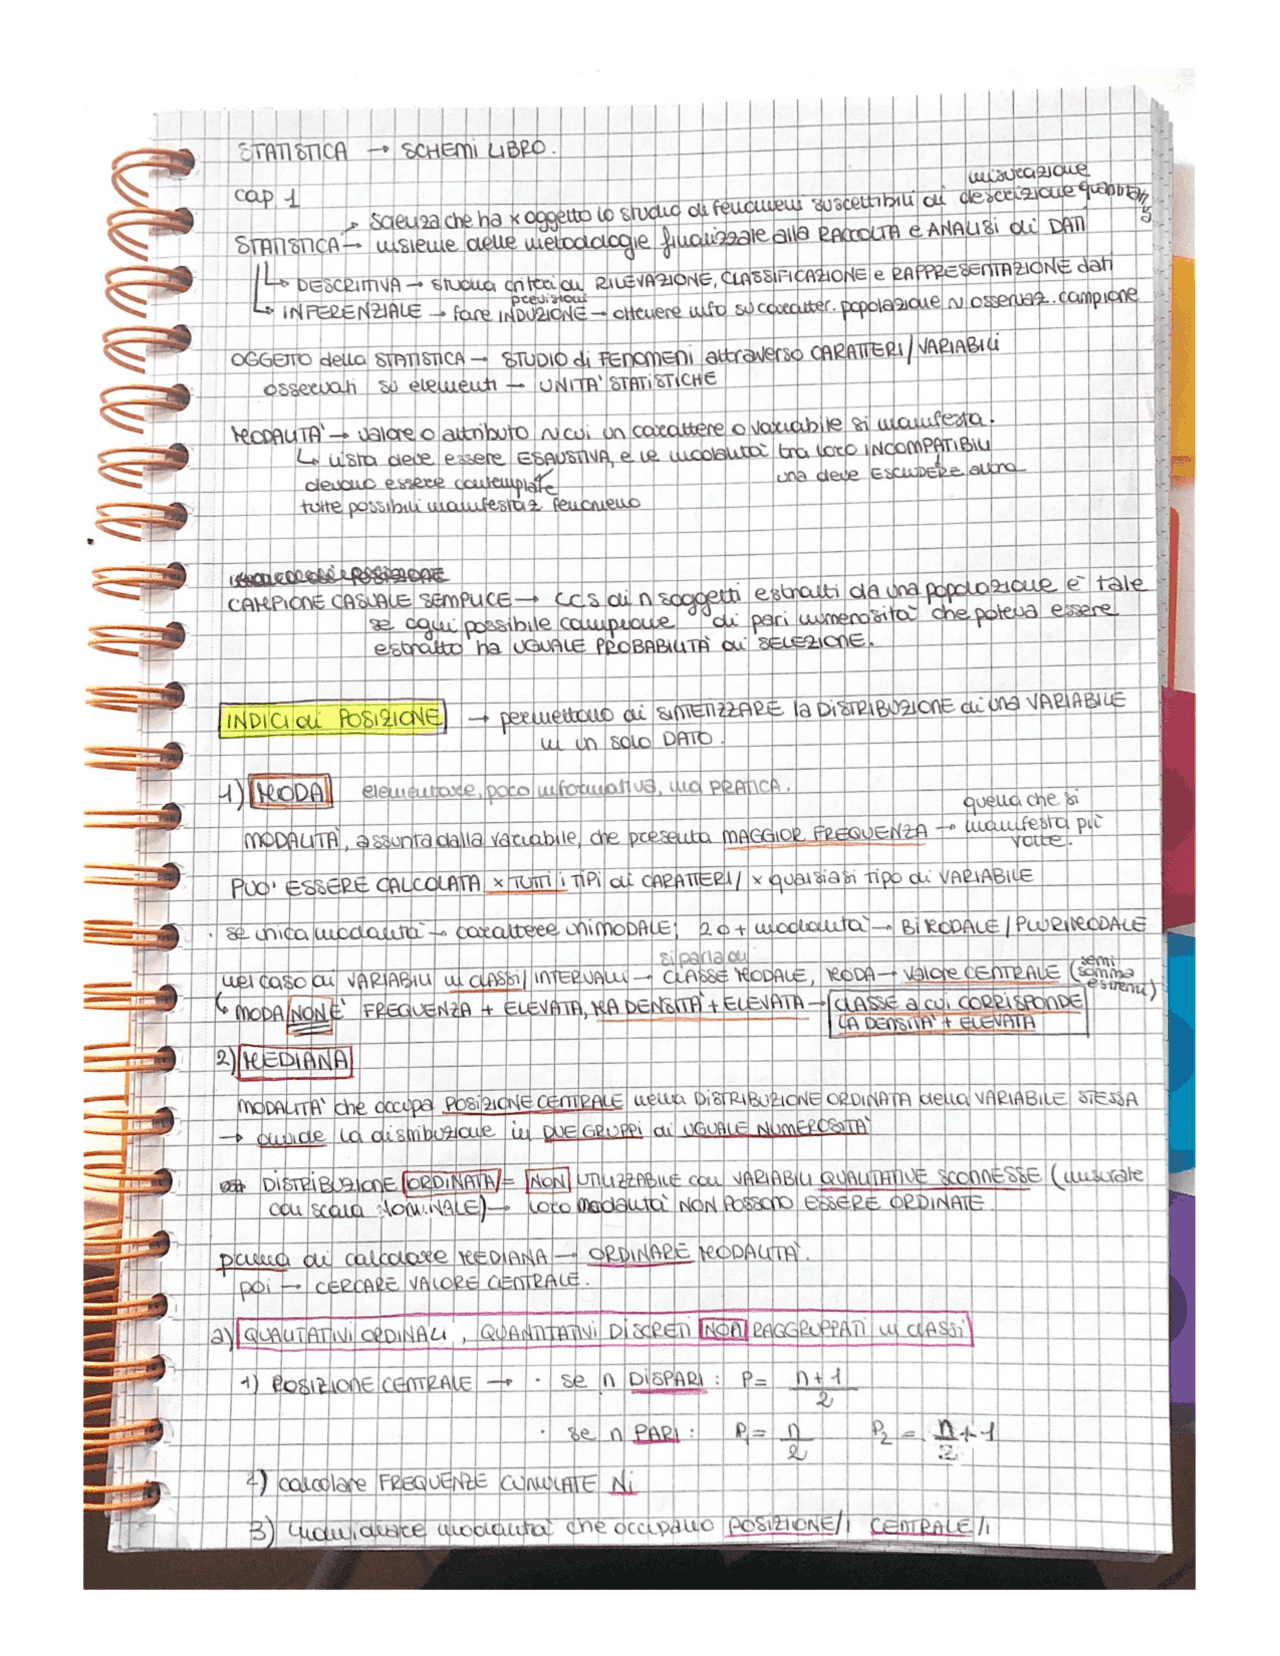 STATISTICA → SCHEMI LIBRO.
cap 1
misurazione
↗ scienza che ha x oggetto lo studio di fenomeni suscettibili di descrizione quantitativa
STATISTICA → insieme delle metodologie finalizzate alla RACCOLTA e ANALISI di DATI
↳ DESCRITTIVA → studia criteri di RILEVAZIONE, CLASSIFICAZIONE e RAPPRESENTAZIONE dati
previsioni
↳ INFERENZIALE → fare INDUZIONE → ottenere info su caratter. popolazione in osservaz. campione
OGGETTO della STATISTICA → STUDIO di FENOMENI attraverso CARATTERI/VARIABILI
osservati su elementi → UNITA' STATISTICHE
MODALITA' → valore o attributo in cui un carattere o variabile si manifesta.
↳ lista deve essere ESAUSTIVA, e le modalità tra loro INCOMPATIBILI
devono essere contemplate
una deve ESCLUDERE altra
tutte possibili manifestaz. fenomeno
CAMPIONE CASUALE SEMPLICE → CCS di n soggetti estratti da una popolazione è tale
se ogni possibile campione di pari numerosità che poteva essere
estratto ha UGUALE PROBABILITÀ di SELEZIONE.
INDICI di POSIZIONE → permettono di SINTETIZZARE la DISTRIBUZIONE di una VARIABILE
in un solo DATO.
1) MODA elementare, poco informativa, ma PRATICA.
quella che si
MODALITÀ, assunta dalla variabile, che presenta MAGGIOR FREQUENZA → manifesta più
volte.
PUO' ESSERE CALCOLATA x TUTTI i TIPI di CARATTERI / x qualsiasi tipo di VARIABILE
· se unica modalità → carattere UNIMODALE; 2 o + modalità → BIMODALE / PLURIMODALE
si parla di
nel caso di VARIABILI in CLASSI / INTERVALLI → CLASSE MODALE, MODA → valore CENTRALE (semi somma estremi)
↳ MODA NON È FREQUENZA + ELEVATA, MA DENSITÀ + ELEVATA → CLASSE a cui CORRISPONDE
LA DENSITÀ + ELEVATA
2) MEDIANA
MODALITÀ che occupa POSIZIONE CENTRALE nella DISTRIBUZIONE ORDINATA della VARIABILE STESSA
→ divide la distribuzione in DUE GRUPPI di UGUALE NUMEROSITÀ
DISTRIBUZIONE ORDINATA = NON UTILIZZABILE con VARIABILI QUALITATIVE SCONNESSE (misurate
con scala NOMINALE) → loro modalità NON POSSONO ESSERE ORDINATE.
prima di calcolare MEDIANA → ORDINARE MODALITÀ.
poi → CERCARE VALORE CENTRALE.
a) QUALITATIVI ORDINALI, QUANTITATIVI DISCRETI NON RAGGRUPPATI in CLASSI
1) POSIZIONE CENTRALE → · se n DISPARI: P = n+1 / 2
· se n PARI: P1 = n / 2 P2 = n / 2 + 1
2) calcolare FREQUENZE CUMULATE Ni
3) individuare modalità che occupano POSIZIONE/I CENTRALE/I